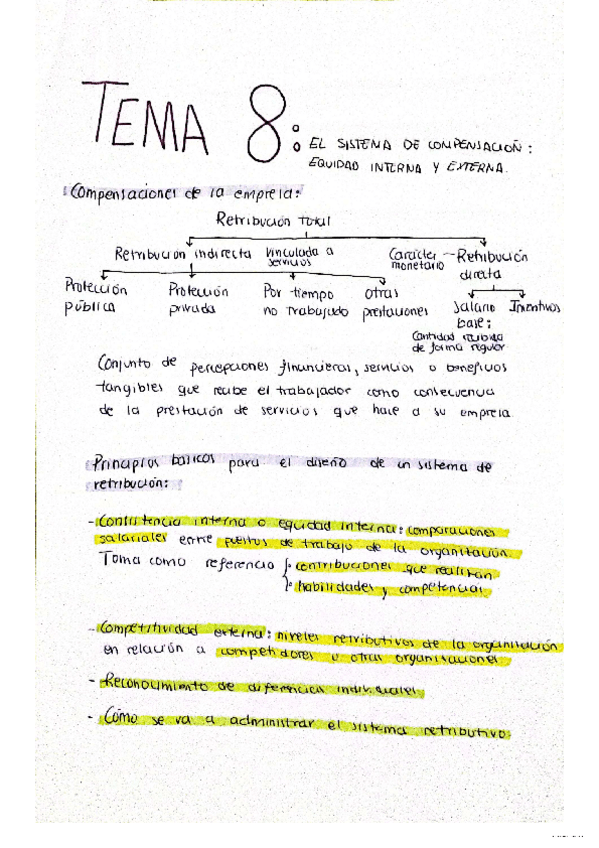 TEMA 8:
EL SISTEMA DE COMPENSACIÓN:
EQUIDAD INTERNA Y EXTERNA.
Compensaciones de la empresa:
Retribución total
Retribución indirecta vinculada a servicios
Carácter monetario - Retribución directa
Protección pública
Protección privada
Por tiempo no trabajado
otras prestaciones
Salario base:
Incentivos
Cantidad recibida de forma regular
Conjunto de percepciones financieras, servicios o beneficios
tangibles que recibe el trabajador como consecuencia
de la prestación de servicios que hace a su empresa.
Principios básicos para el diseño de un sistema de
retribución:
- Consistencia interna o equidad interna: comparaciones
salariales entre puestos de trabajo de la organización.
Toma como referencia
contribuciones que realizan
habilidades y competencias
- Competitividad externa: niveles retributivos de la organización
en relación a competidores u otras organizaciones
- Reconocimiento de diferencias individuales
- Cómo se va a administrar el sistema retributivo.